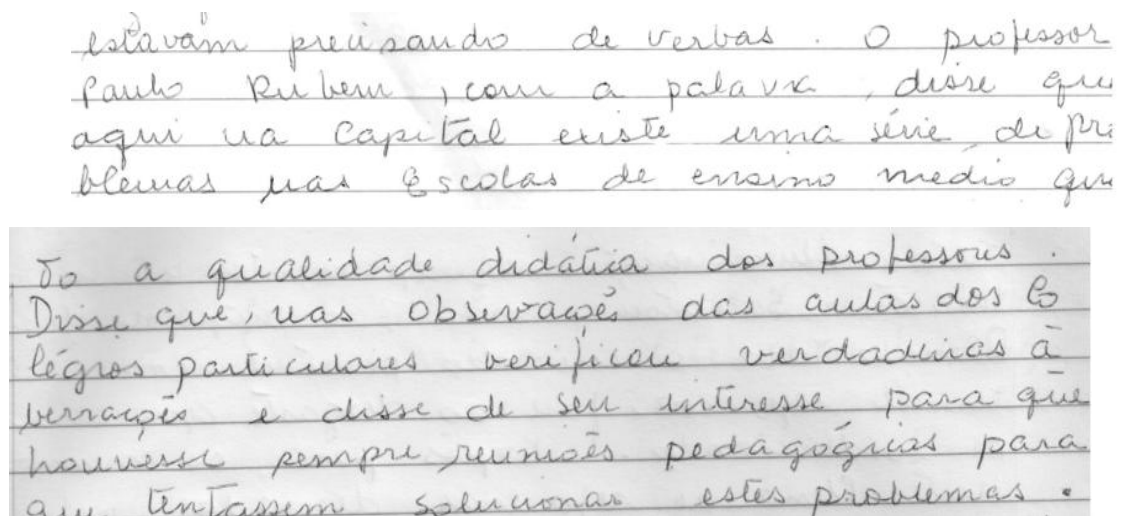 estavam precisando de verbas. O professor
Paulo Rubem, com a palavra, disse que
aqui na Capital existe uma série de pro
blemas nas Escolas de ensino médio que
to a qualidade didática dos professores.
Disse que, nas observações das aulas dos Co
légios particulares verificou verdadeiras a
berrações e disse de seu interesse para que
houvesse sempre reuniões pedagógicas para
que tentassem solucionar estes problemas.